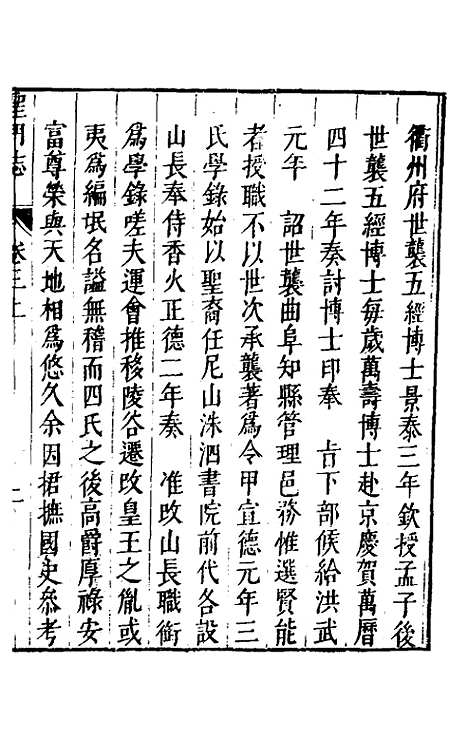 衢州府世襲五經博士景泰三年欽授孟子後
世襲五經博士每歲萬壽博士赴京慶賀萬曆
四十二年奏討博士印奉　旨下部候給洪武
元年　詔世襲曲阜知縣管理邑務惟選賢能
者授職不以世次承襲著爲令甲宣德元年三
氏學錄始以聖裔任尼山洙泗書院前代各設
山長奉侍香火正德二年奏　准改山長職銜
爲學錄嗟夫運會推移陵谷遷改皇王之胤或
夷爲編氓名謚無稽而四氏之後高爵厚祿安
富尊榮與天地相爲悠久余因捃摭國史參考
聖門志
卷三上
二